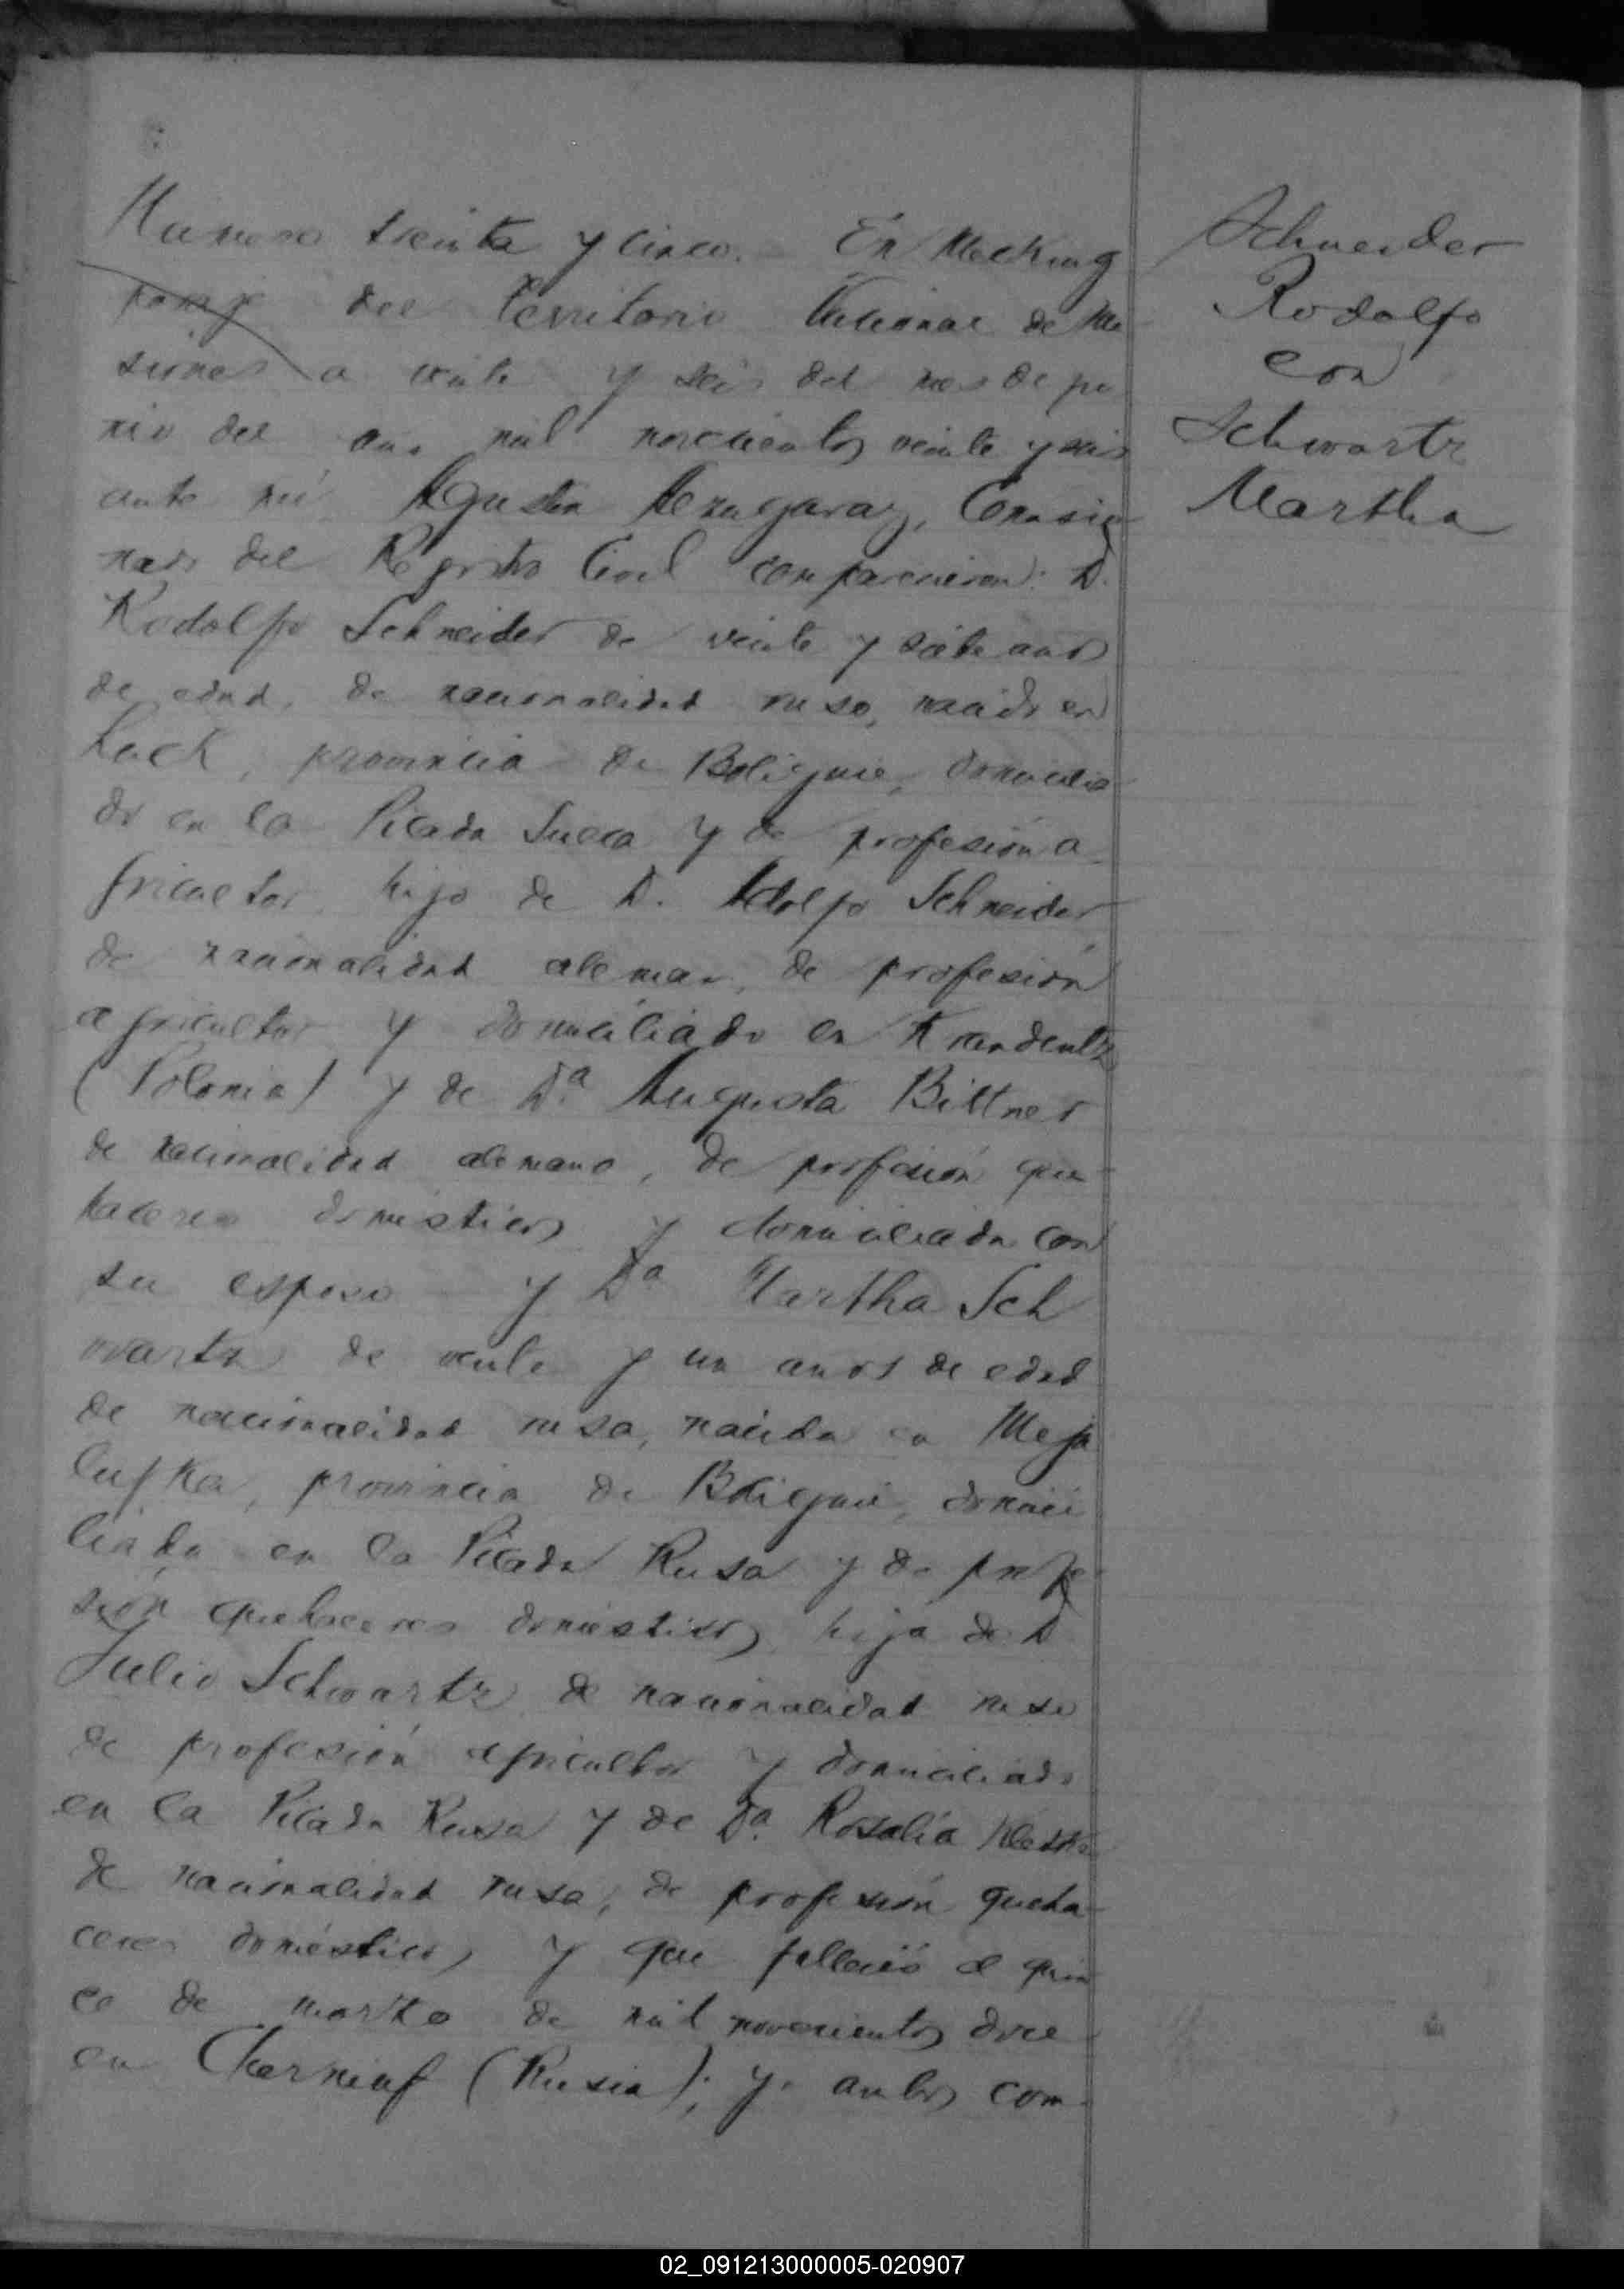 Numero treinta y cinco. - En Mecking
paraje del Territorio Nacional de Mi
siones a veinte y seis del mes de ju
nio del año mil novecientos veinte y seis
ante mí Agustin Comisio
nado del Registro Civil comparecieron: D.
Rodolfo Schneider de veinte y siete años
de edad, de nacionalidad ruso, nacido en
Luck, provincia de domicilia
do en la Picada Sueca y de profesión a
gricultor, hijo de D. Adolfo Schneider
de nacionalidad aleman, de profesión
agricultor y domiciliado en Kraudentz
(Polonia) y de Da. Augusta Bittner
de nacionalidad alemana, de profesión que
haceres domésticos y domiciliada con
su esposo - y Da Martha Sch
wartz de veinte y un años de edad
de nacionalidad rusa, nacida en
provincia de domici
liada en la Picada Rusa y de profe
sión quehaceres domésticos hija de D
Julio Schwartz de nacionalidad ruso
de profesión agricultor y domiciliado
en la Picada Rusa y de Da. Rosalía
de nacionalidad rusa, de profesión queha
ceres domésticos y que falleció el quin
ce de marzo de mil novecientos doce
en (Rusia); y ambos com-
Schneider
Rodolfo
con
Schwartz
Martha
02_091213000005-020907